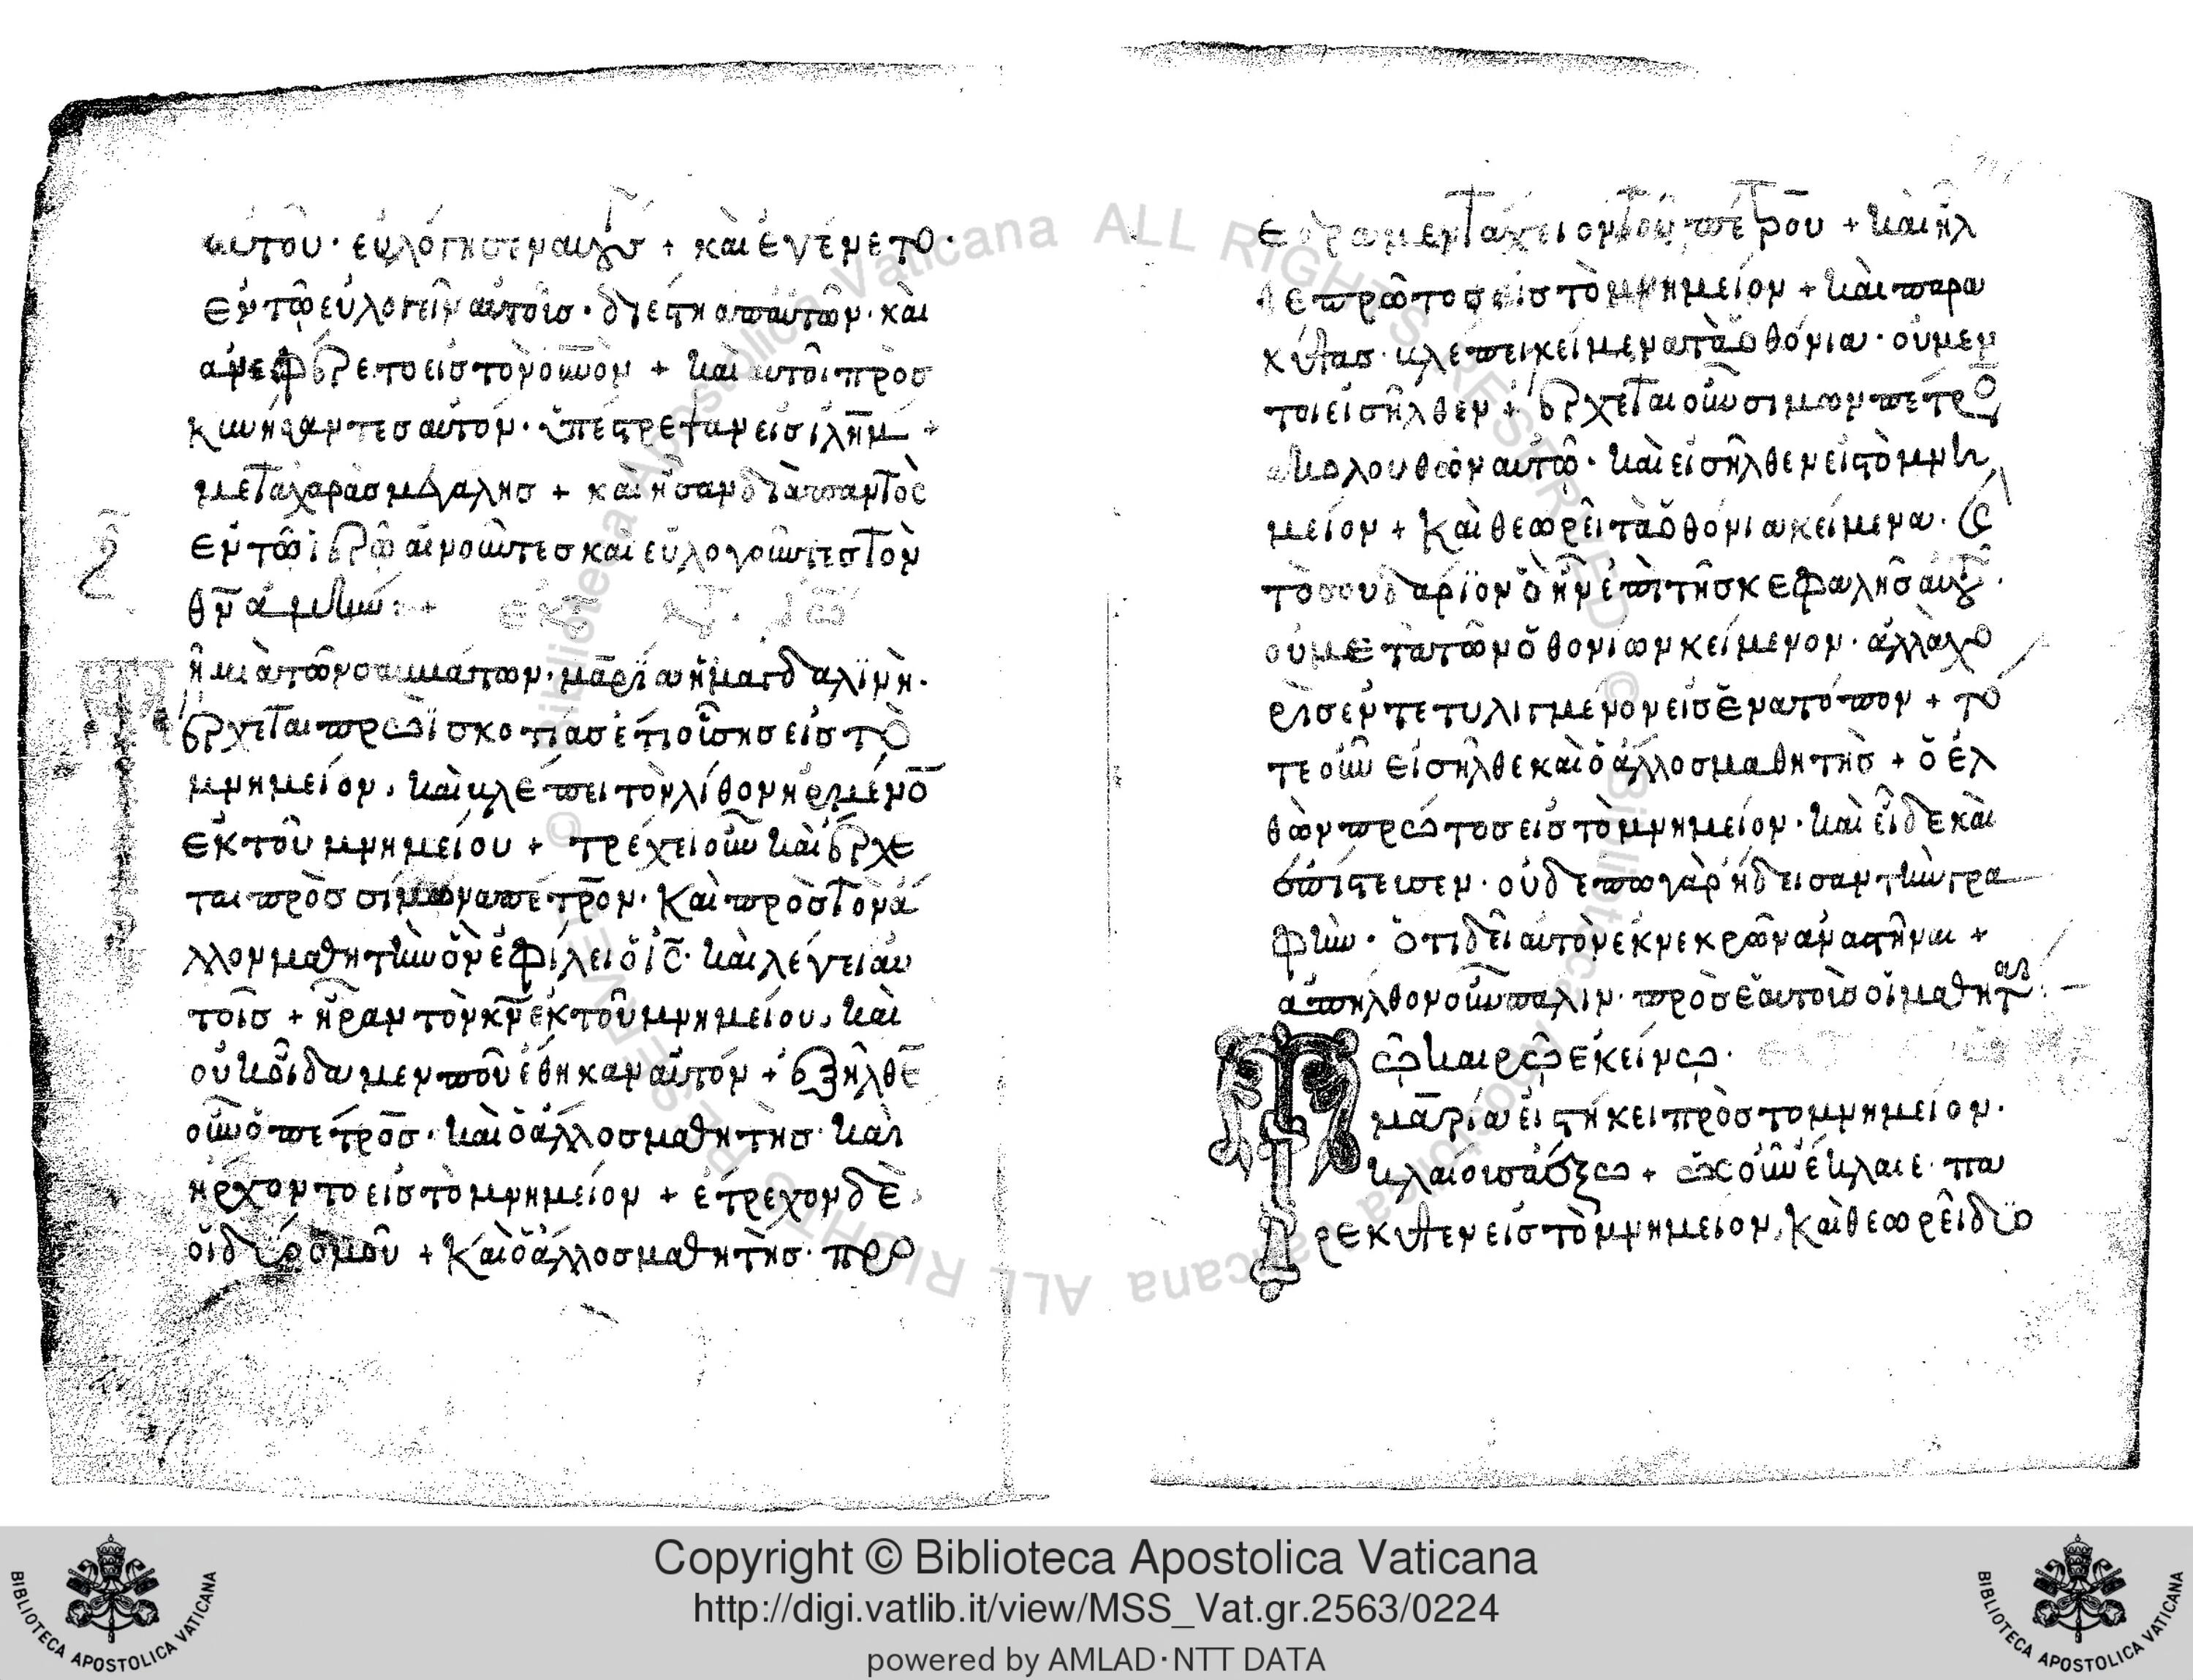 αὐτοῦ· εὐλόγησεν αὐτούσ + καὶ ἐγένετο·
ἐν τῶ εὐλογεῖν αὐτοῖσ· διέστη ἀπ αὐτῶν· καὶ
ἀνεφέρετο εἰσ τὸν οὐνὸν + καὶ αὐτοὶ πρὸσ
κυνήσαντεσ αὐτόν· ὑπέστρεψαν εἰσ ἱλημ +
μετὰ χαρὰσ μεγάλησ + καὶ ἦσαν διὰ παντὸς
ἐν τῶ ἱερῶ αἰνοῦντεσ καὶ εὐλογοῦντεσ τὸν
θν ἀμήν: +
ζ
Τῆ μιὰ τῶν σαμμάτων· μαρία ἡ μαγδαλινὴ·
ἔρχεται πρωῒ σκοτίασ ἔτι οὔσησ εἰσ τὸ
μνημείον, καὶ βλέπει τὸν λίθον ἠρμένο̄
ἐκ τοῦ μνημείου + τρέχει οὖν καὶ ἔρχε
ται πρὸσ σίμωνα πέτρον· καὶ πρὸσ τὸν ἄ
λλον μαθητὴν ὃν ἐφίλει ὁ ις· καὶ λέγει αυ
τοῖσ + ἦραν τὸν κν ἐκ τοῦ μνημείου, καὶ
οὐκ οἴδαμεν ποῦ ἔθηκαν αὐτόν + ἐξῆλθε̄
οὖν ὁ πέτροσ· καὶ ὁ ἄλλοσ μαθητὴσ· καὶ
ἤρχοντο εἰσ τὸ μνημείον + ἔτρεχον δὲ
οἱ δύο ὁμοῦ + καὶ ὁ ἄλλοσ μαθητὴσ· προ
έδραμεν τάχειον τοῦ πέτρου + καὶ ἦλ
θε πρῶτοσ εἰσ τὸ μνημείον + καὶ παρα
κύψασ· βλέπει κείμενα τὰ ὀθόνια· οὐ μέν
τοι εἰσῆλθεν + ἔρχεται οὖν σιμων πέτρο
ἀκολουθῶν αὐτῶ· καὶ εἰσῆλθεν εἰσ τὸ μνη
μείον + καὶ θεωρεῖ τὰ ὀθόνια κείμενα· ϗ
τὸ σουδαρίον ὃ ἦν ἐπὶ τῆσ κεφαλῆσ αὐτοῦ·
οὐ μετὰ τῶν ὀθονίων κείμενον· ἀλλὰ χω
ρὶσ ἐντετυλιγμένον εἰσ ἕνα τόπον + τό
τε οὖν εἰσῆλθε καὶ ὁ ἄλλοσ μαθητὴσ + ὁ ἐλ
θὼν πρωτοσ εἰσ τὸ μνημείον· καὶ εἶδε καὶ
ἐπίστευσεν· οὐδέπω γὰρ ἤδεισαν τὴν γρα
φὴν· ὅτι δεῖ αὐτὸν ἐκ νεκρῶν ἀναστῆναι +
ἀπῆλθον οὖν παλιν· πρὸσ ἑαυτοὺσ οἱ μαθηταί: –
Τῶ καιρῶ ἐκείνω·
μαρία εἱστήκει πρὸσ το μνημείον·
κλαίουσα ἔξω + ὡς οὖν ἔκλαιε· πα
ρέκυψεν εἰσ τὸ μνημειον, καὶ θεωρεῖ δύο
Copyright © Biblioteca Apostolica Vaticana
http://digi.vatlib.it/view/MSS_Vat.gr.2563/0224
powered by AMLAD·NTT DATA
BIBLIOTECA APOSTOLICA VATICANA
BIBLIOTECA APOSTOLICA VATICANA